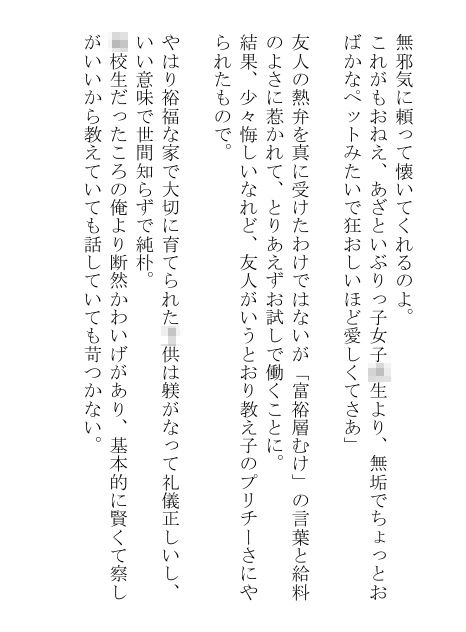 無邪気に頼って懐いてくれるのよ。
これがもおねえ、あざといぶりっ子女子生より、無垢でちょっとお
ばかなペットみたいで狂おしいほど愛しくてさあ」
友人の熱弁を真に受けたわけではないが「富裕層むけ」の言葉と給料
のよさに惹かれて、とりあえずお試しで働くことに。
結果、少々悔しいなれど、友人がいうとおり教え子のプリチーさにや
られたもので。
やはり裕福な家で大切に育てられた供は躾がなって礼儀正しいし、
いい意味で世間知らずで純朴。
校生だったころの俺より断然かわいげがあり、基本的に賢くて察し
がいいから教えていても話していても苛つかない。